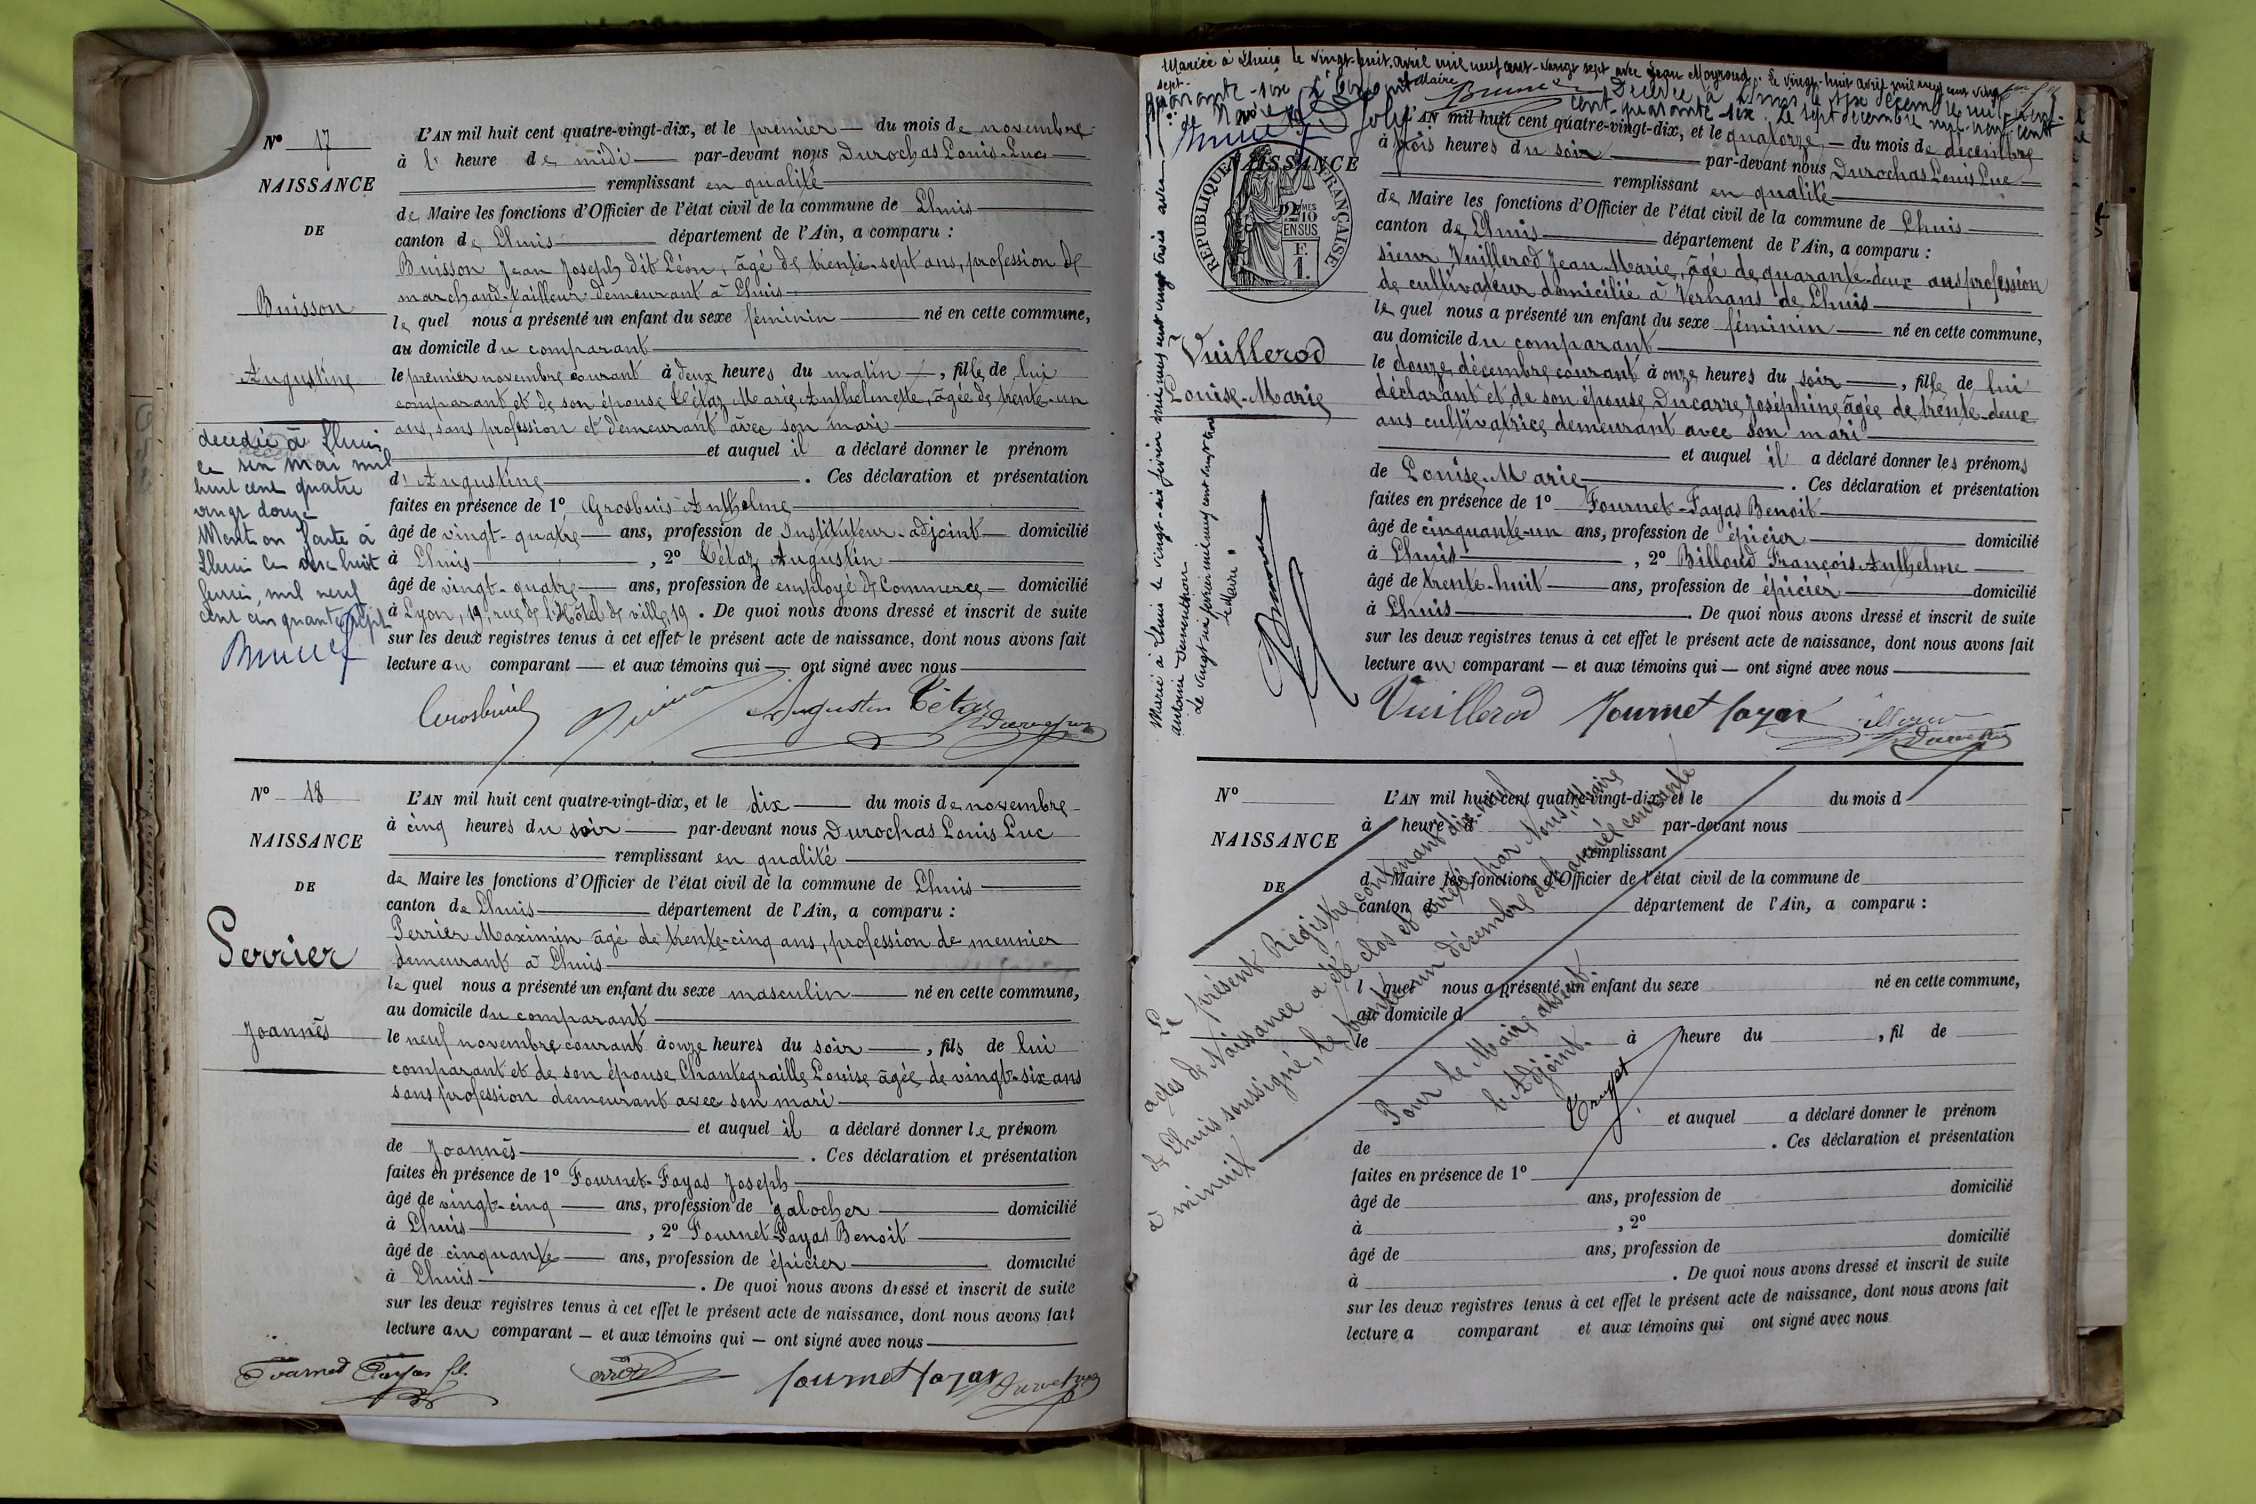 N° 17
NAISSANCE
DE
Buisson
Augustine
décédée à Lhuis
le six mai mil
huit cent quatre
vingt douze
Mention faite à
Lhuis le dix huit
mil neuf
cent cinquante sept
L'AN mil huit cent quatre-vingt-dix, et le premier du mois de novembre
à l' heure de midi par-devant nous Durochas Louis-Luc
remplissant en qualité
de Maire les fonctions d'Officier de l'état civil de la commune de Lhuis
canton de Lhuis département de l'Ain, a comparu :
Buisson Jean Joseph dit Léon, âgé de trente-sept ans, profession de
marchand-tailleur demeurant à Lhuis
lequel nous a présenté un enfant du sexe féminin né en cette commune,
au domicile du comparant
le premier novembre courant à deux heures du matin, fille de lui
comparant et de son épouse Tétaz Marie Anthelmette, âgée de trente-un
ans, sans profession et demeurant avec son mari
et auquel il a déclaré donner le prénom
d'Augustine. Ces déclaration et présentation
faites en présence de 1° Grosbuis Anthelme
âgé de vingt-quatre ans, profession de Instituteur-adjoint domicilié
à Lhuis, 2° Tétaz Augustin
âgé de vingt-quatre ans, profession de employé de Commerce domicilié
à Lyon, 19, rue de l'Hôtel de ville, 19. De quoi nous avons dressé et inscrit de suite
sur les deux registres tenus à cet effet le présent acte de naissance, dont nous avons fait
lecture au comparant et aux témoins qui ont signé avec nous
Augustin Tétaz
N° 18
NAISSANCE
DE
Perrier
Joannès
L'AN mil huit cent quatre-vingt-dix, et le dix du mois de novembre
à cinq heures du soir par-devant nous Durochas Louis Luc
remplissant en qualité
de Maire les fonctions d'Officier de l'état civil de la commune de Lhuis
canton de Lhuis département de l'Ain, a comparu :
Perrier Maximin âgé de trente-cinq ans, profession de meunier
demeurant à Lhuis
lequel nous a présenté un enfant du sexe masculin né en cette commune,
au domicile du comparant
le neuf novembre courant à onze heures du soir, fils de lui
comparant et de son épouse Chantegraille Louise âgée de vingt-six ans
sans profession demeurant avec son mari
et auquel il a déclaré donner le prénom
de Joannès. Ces déclaration et présentation
faites en présence de 1° Fournet-Fayas Joseph
âgé de vingt-cinq ans, profession de galocher domicilié
à Lhuis, 2° Fournet-Fayas Benoit
âgé de cinquante ans, profession de épicier domicilié
à Lhuis. De quoi nous avons dressé et inscrit de suite
sur les deux registres tenus à cet effet le présent acte de naissance, dont nous avons fait
lecture au comparant et aux témoins qui ont signé avec nous
Fournet Fayas fils
Fournet Fayas
Mariée à Lhuis le vingt-huit avril mil neuf cent vingt sept avec Jean Mayroud. Le vingt-huit avril mil neuf cent vingt
sept. Le Maire
Décédée à le sept décembre mil neuf
cent quarante-six. Le sept décembre mil-neuf-cent
quarante-six
NAISSANCE
RÉPUBLIQUE FRANÇAISE
2/10 EN SUS
F. 1.
Marié à Lhuis le vingt-six février mil neuf cent vingt trois avec
Antoine
Le vingt six février mil neuf cent vingt trois
Le Maire
Vuillerod
Louise-Marie
L'AN mil huit cent quatre-vingt-dix, et le quatorze du mois de décembre
à trois heures du soir par-devant nous Durochas Louis Luc
remplissant en qualité
de Maire les fonctions d'Officier de l'état civil de la commune de Lhuis
canton de Lhuis département de l'Ain, a comparu :
sieur Vuillerod Jean-Marie, âgé de quarante-deux ans profession
de cultivateur domicilié à Verhans de Lhuis
lequel nous a présenté un enfant du sexe féminin né en cette commune,
au domicile du comparant
le douze décembre courant à onze heures du soir, fille de lui
déclarant et de son épouse Ducarre Joséphine âgée de trente-deux
ans cultivatrice demeurant avec son mari
et auquel il a déclaré donner les prénoms
de Louise-Marie. Ces déclaration et présentation
faites en présence de 1° Fournet-Fayas Benoit
âgé de cinquante-un ans, profession de épicier domicilié
à Lhuis, 2° Billoud François-Anthelme
âgé de trente-huit ans, profession de épicier domicilié
à Lhuis. De quoi nous avons dressé et inscrit de suite
sur les deux registres tenus à cet effet le présent acte de naissance, dont nous avons fait
lecture au comparant et aux témoins qui ont signé avec nous
Vuillerod Fournet Fayas
N°
NAISSANCE
DE
L'AN mil huit cent quatre-vingt-dix, et le du mois d
à heure d par-devant nous
remplissant
d Maire les fonctions d'Officier de l'état civil de la commune de
canton d département de l'Ain, a comparu :
l quel nous a présenté un enfant du sexe né en cette commune,
au domicile d
le à heure du , fil de
et auquel a déclaré donner le prénom
de . Ces déclaration et présentation
faites en présence de 1°
âgé de ans, profession de domicilié
à , 2°
âgé de ans, profession de domicilié
à . De quoi nous avons dressé et inscrit de suite
sur les deux registres tenus à cet effet le présent acte de naissance, dont nous avons fait
lecture a comparant et aux témoins qui ont signé avec nous
Le présent Registre contenant dix-neuf
actes de Naissance a été clos et arrêté par Nous, Maire
de Lhuis soussigné, le trente-un décembre de l'année courante
à minuit
Pour le Maire absent
l'Adjoint,